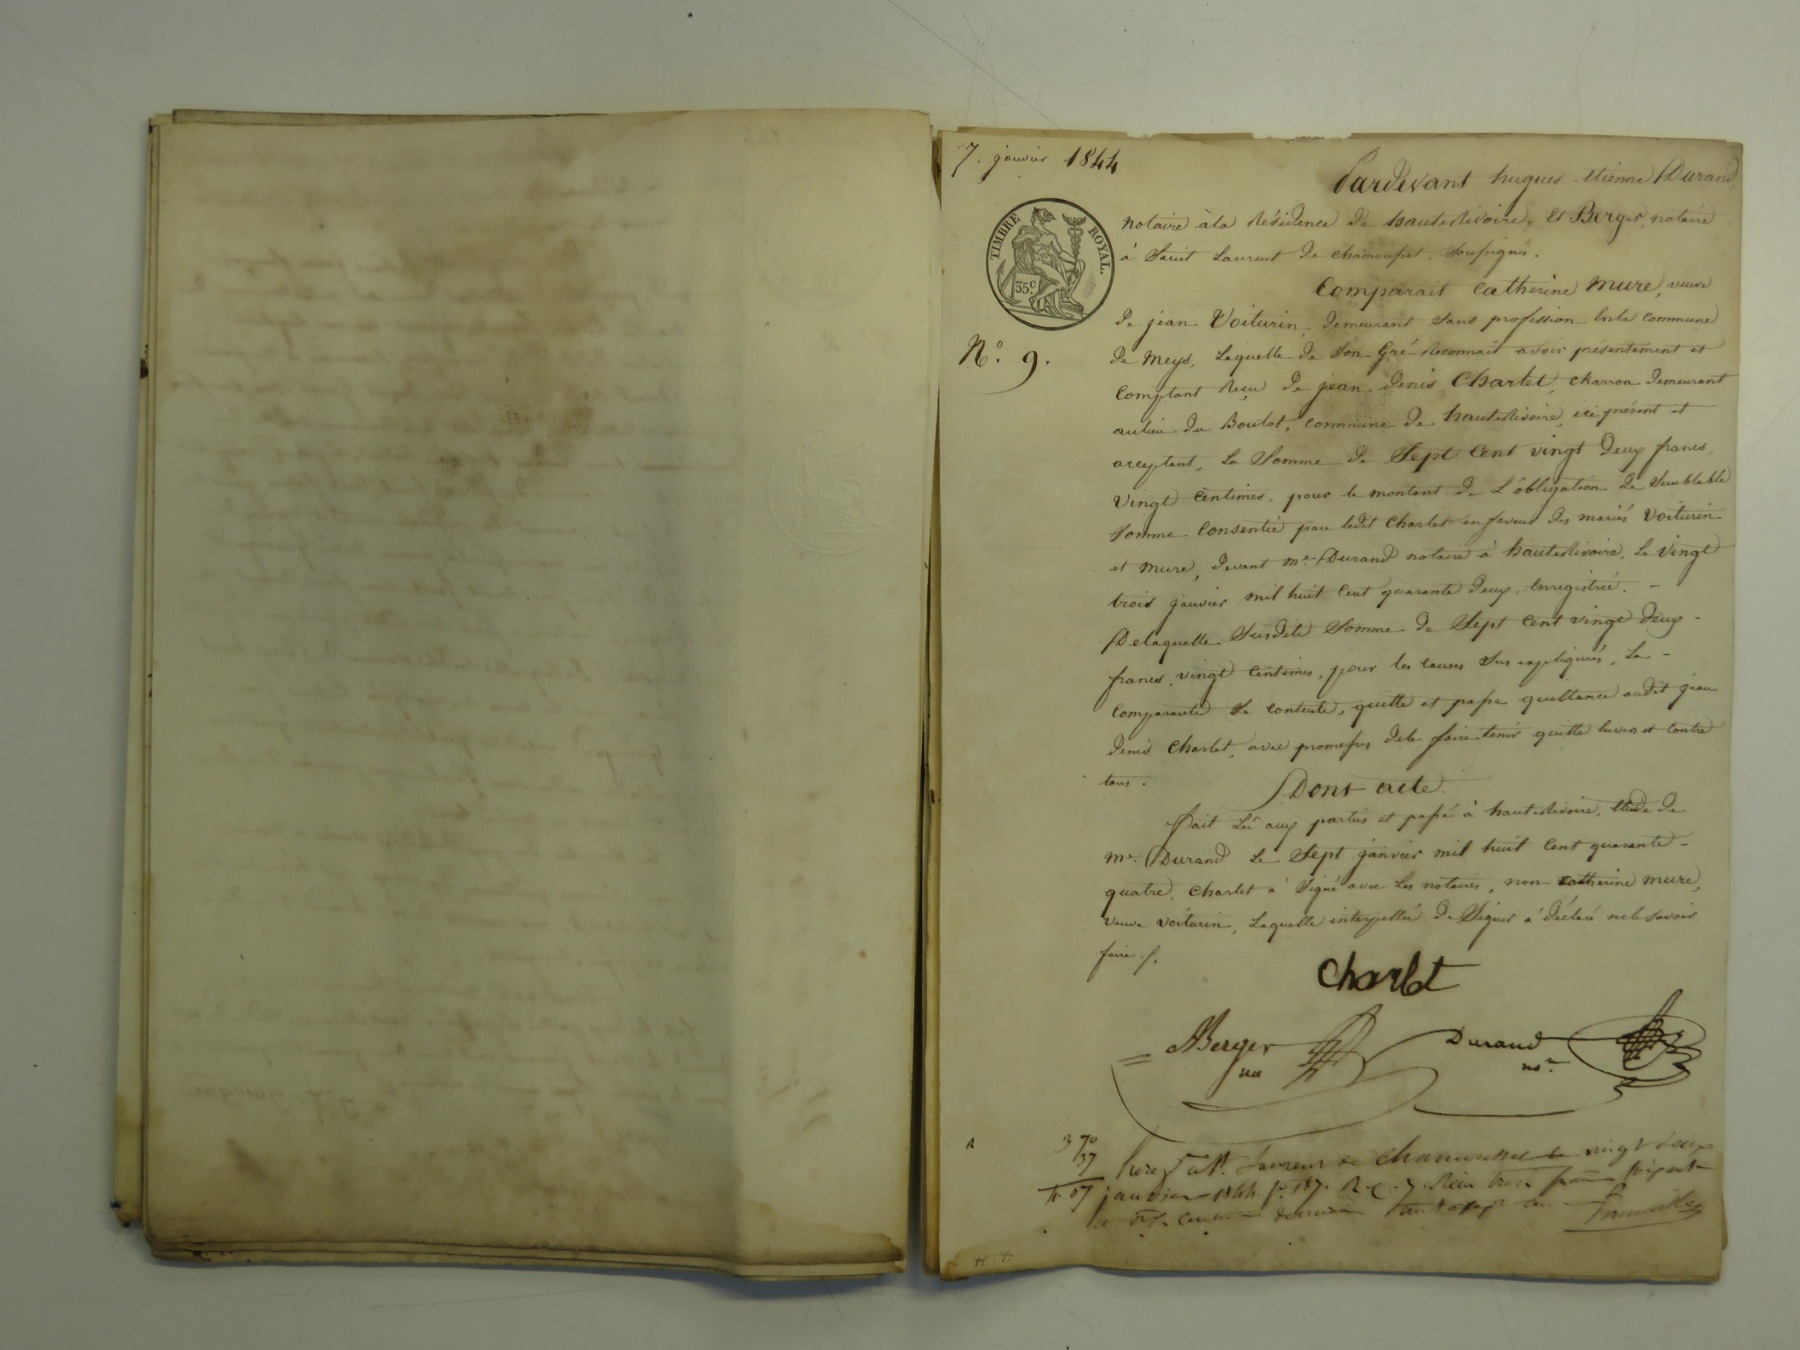 7. janvier 1844
Pardevant hugues etienne Durand,
notaire à la Résidence de hauterivoire, Et Berger, notaire
à Saint Laurent de chamousset, soussignés.
TIMBRE ROYAL.
35c
Comparait Catherine Mure, veuve
de jean Voiturin, demeurant sans profession En la commune
No. 9.
de Meys, Laquelle de son Gré Reconnait avoir présentement et
Comptant Reçu de jean denis Charlet, charron demeurant
au lieu du Boulot, Commune de hauterivoire, ici présent et
acceptant, La Somme de Sept Cent vingt Deux francs
Vingt centimes, pour le montant de L'obligation de Semblable
Somme Consentie par ledit Charlet en faveur des mariés Voiturin
et Mure, devant me. Durand notaire à hauterivoire, Le vingt
trois janvier mil huit Cent quarante Deux, Enregistrée. -
De laquelle Susdite Somme de Sept Cent vingt deux -
francs, vingt Centimes, pour les causes sus expliquées, La -
Comparante Se Contente, quitte et passe quittance audit jean
denis Charlet, avec promesses de le faire tenir quitte Envers et Contre
tous.
Dont acte.
Fait Lu aux parties et passé à hauterivoire, Etude de
me. Durand Le Sept janvier mil huit Cent quarante -
quatre, Charlet a Signé avec Les notaires, non Catherine Mure,
Veuve Voiturin, Laquelle interpellée de Signer a déclaré ne le Savoir
faire ./.
Charlet
Berger
Durand
nre.
R
3 70
37
4. 07
à St. Laurent de Chamousset le vingt deux
janvier 1844 fo. 187. R. C. 7. Reçu trois francs soixante